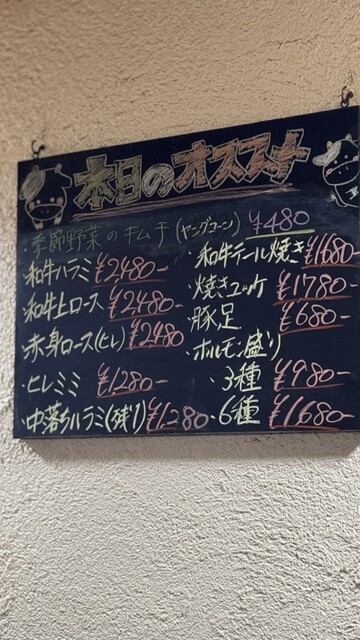 本日のオススメ
・季節野菜のキムチ(ヤングコーン) ¥480
・和牛ハラミ ¥2,480-
・和牛上ロース ¥2,480-
・赤身ロース(ヒレ) ¥2,480
・ヒレミミ ¥1,280-
・中落ちハラミ(残1) ¥1,280
・和牛テール焼き ¥1,680-
・焼きユッケ ¥1,780-
・豚足 ¥680-
・ホルモン盛り
・3種 ¥980-
・6種 ¥1,680-